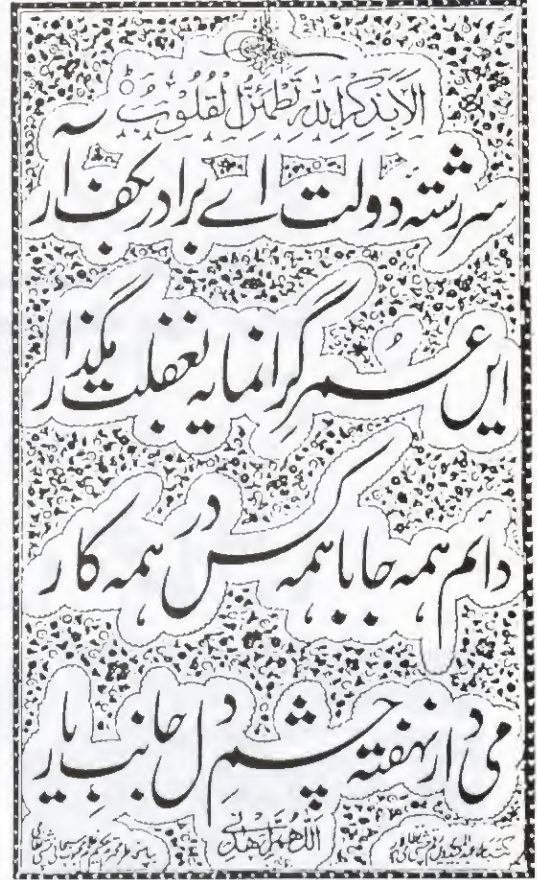 الا بذكر الله تطمئن القلوب
سر رشتہ دولت اے برادر بکف آر
ایں عمر گرانمایہ بغفلت مگذار
دائم ہمہ جا با ہمہ کس در ہمہ کار
می دار نہفتہ چشم دل جانب یار